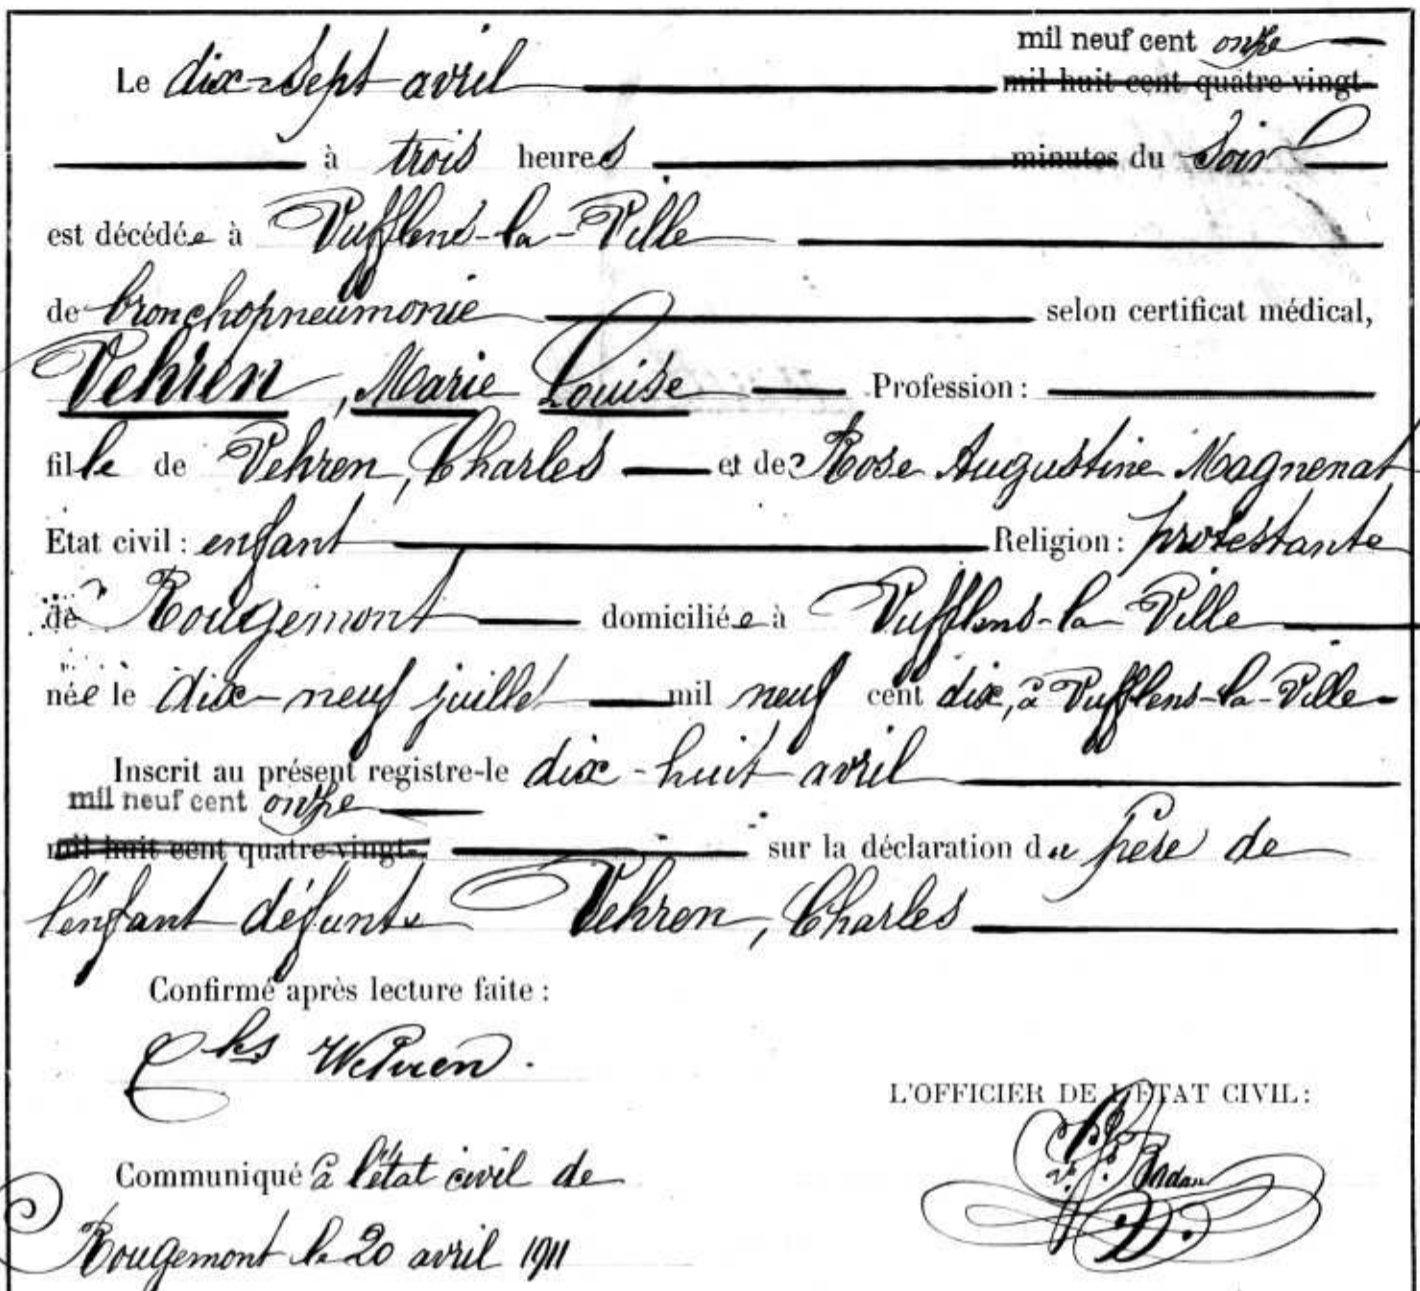 mil neuf cent onze
Le dix-sept avril mil huit cent quatre-vingt-
à trois heures minutes du soir
est décédée à Vufflens-la-Ville
de bronchopneumonie selon certificat médical,
Vehren, Marie Louise Profession :
fille de Vehren, Charles et de Rose Augustine Magnenat
Etat civil : enfant Religion : protestante
de Rougemont domiciliée à Vufflens-la-Ville
née le dix-neuf juillet mil neuf cent dix, à Vufflens-la-Ville
Inscrit au présent registre-le dix-huit avril
mil neuf cent onze
mil huit cent quatre-vingt- sur la déclaration du père de
l'enfant défunte Vehren, Charles
Confirmé après lecture faite :
Chs Wehren.
L'OFFICIER DE L'ETAT CIVIL :
Communiqué à l'état civil de
Rougemont le 20 avril 1911